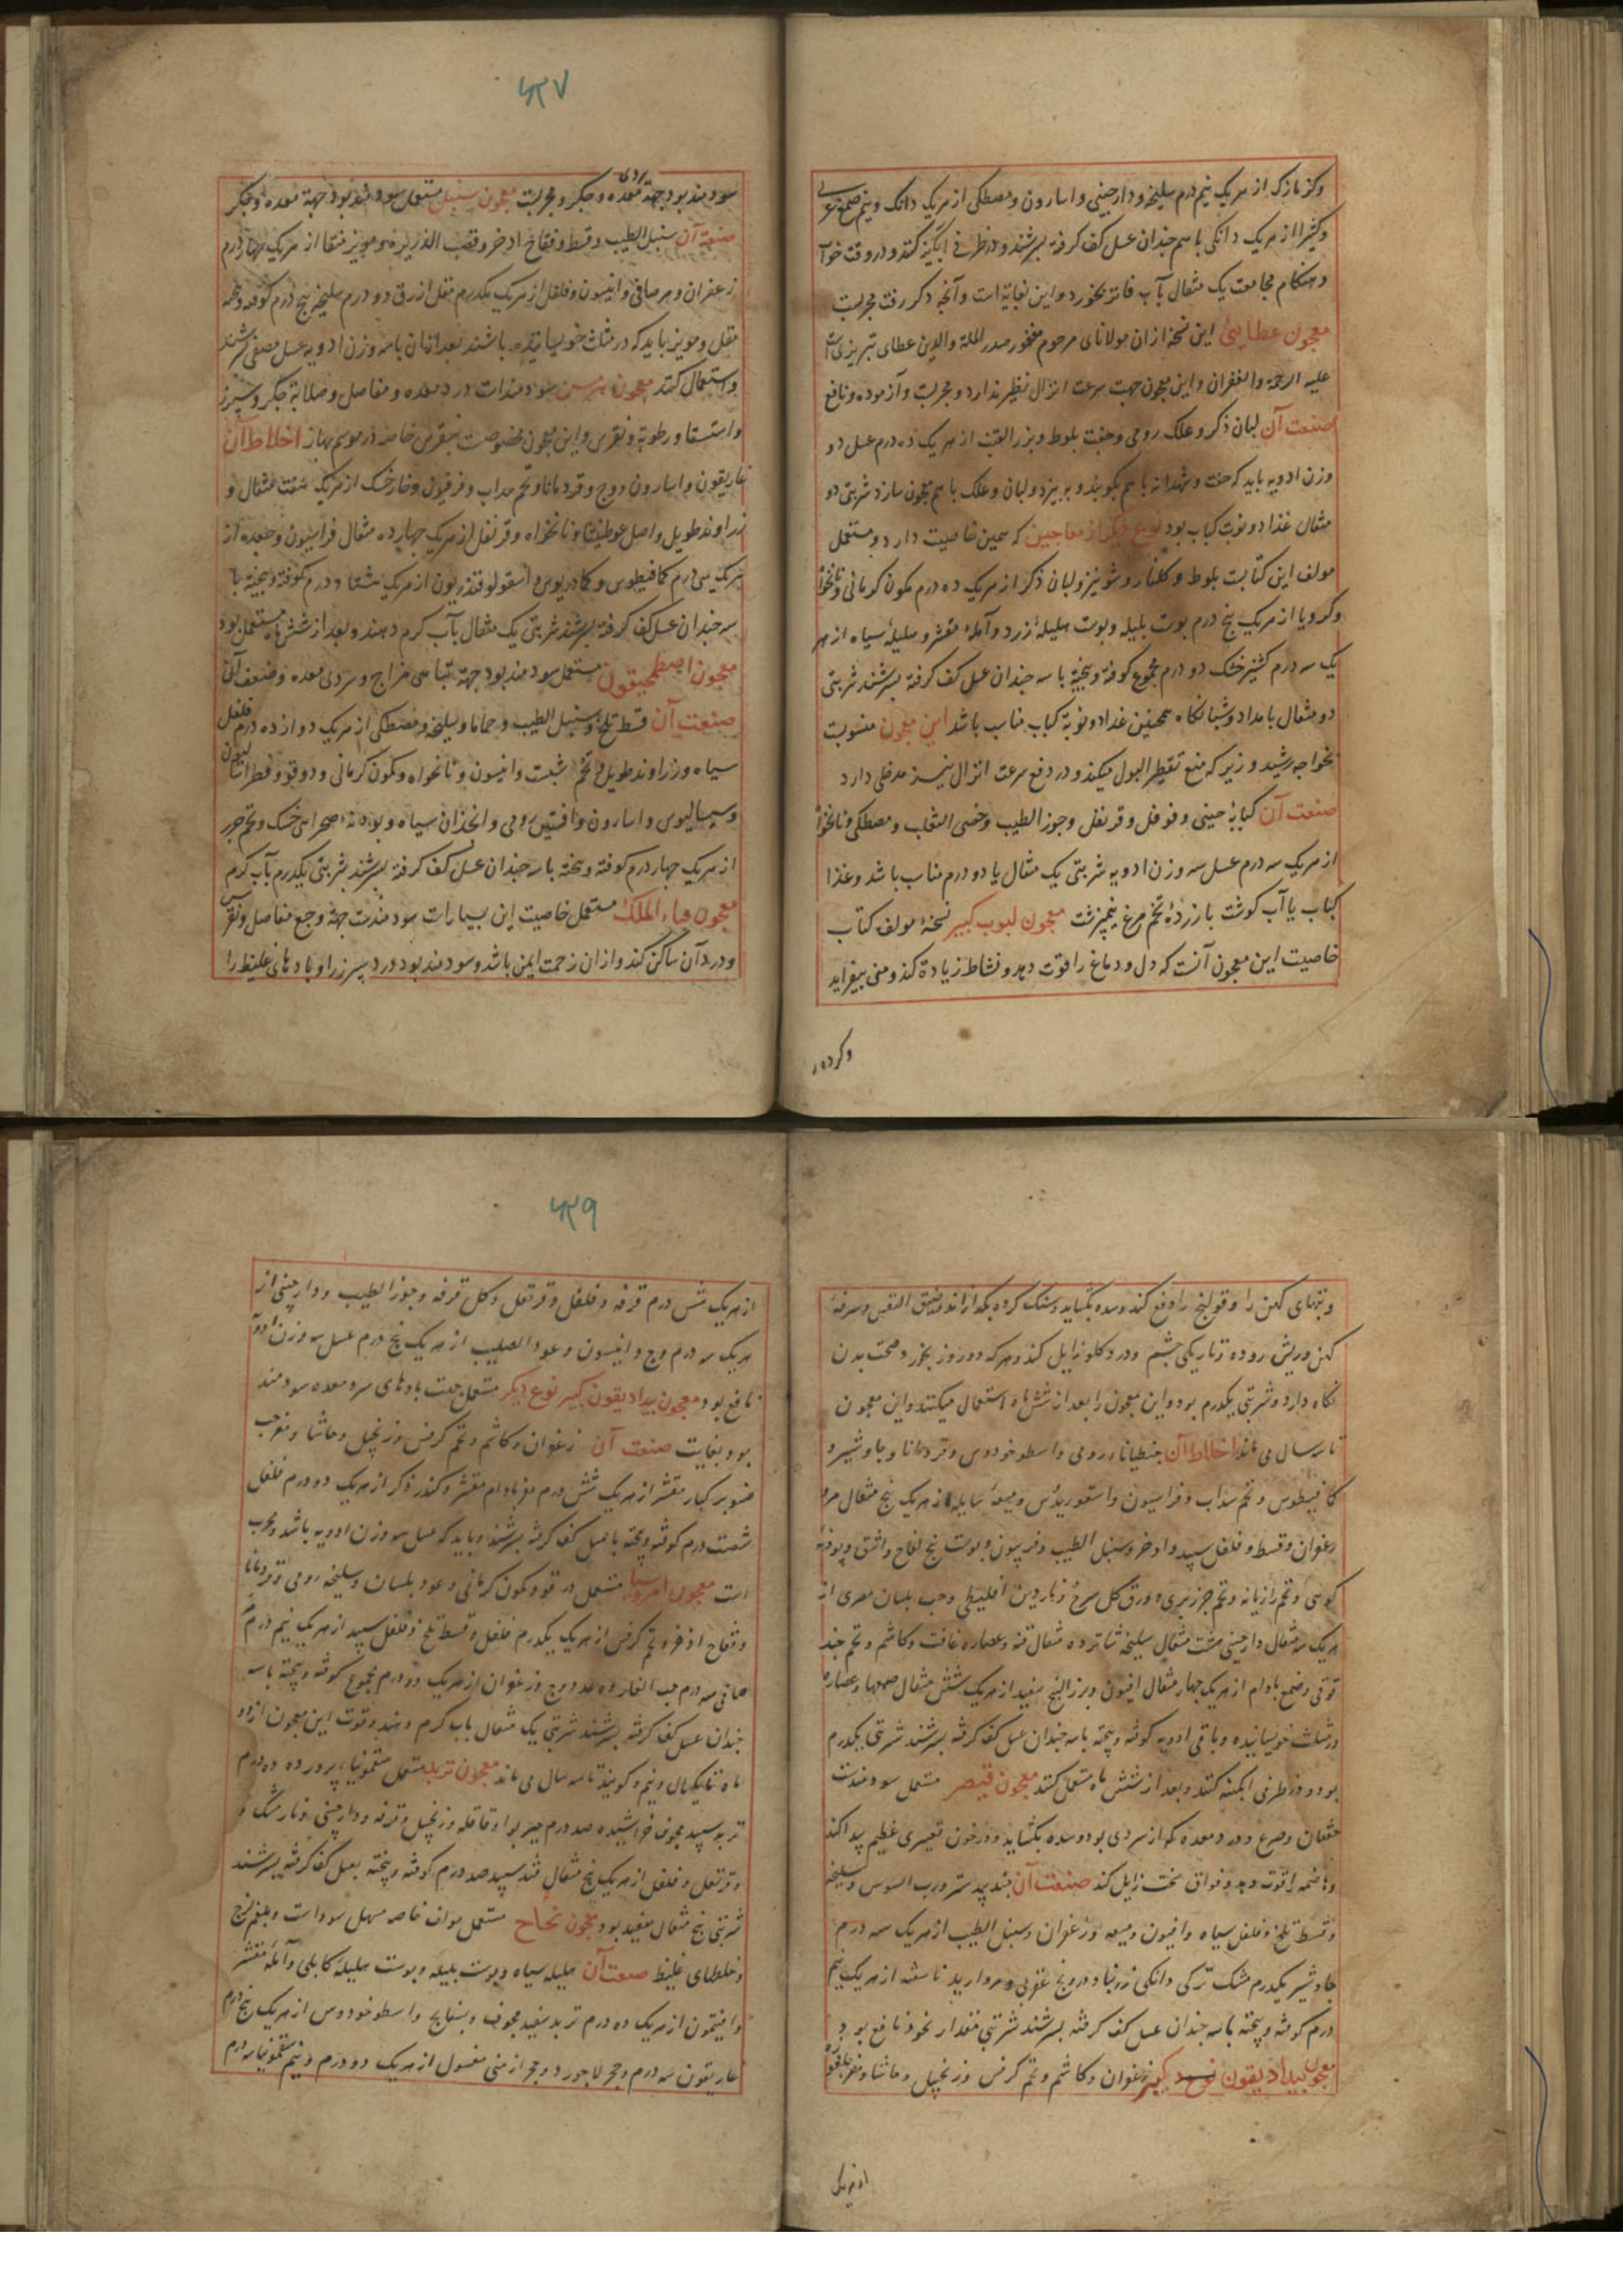 وکزمازک از هریک نیم درم سلیخه و دارچینی و اسارون و مصطکی از هریک دانک و نیم صمغ عربی
وکثیرا از هریک دانکی با سه چندان عسل کف کرفته بسرشند و در ظرفی آبگینه کنند و در وقت خواب
و هنکام مجامعت یک مثقال بآب فاتر بخورد و این بغایة است و آنچه ذکر رفت مجربست
معجون عطایی این نسخه ازان مولانای مرحوم مغفور صدر الملة والدین عطای تبریزی است
علیه الرحمة والغفران و این معجون جهت سرعت انزال نظیر ندارد و مجربست و آزموده و نافع
صنعت آن لبان ذکر و علک رومی و جفت بلوط و بزر القنب از هریک ده درم عسل دو
وزن ادویه باید که جفت و شهدانه با هم بکوبند و ببیزد و لبان و علک با هم معجون سازد شربتی دو
مثقال غذا دو نوبت کباب بود نوع دیکر از معاجین که همین خاصیت دارد و مستعمل
مولف این کتابست بلوط و کلنار و شونیز و لبان ذکر از هریک ده درم کمون کرمانی و نانخواه
وکرویا از هریک پنج درم پوست بلیله و پوست هلیلهٔ زرد و آملهٔ مقشر و هلیلهٔ سیاه از هر
یک سه درم کشنیز خشک دو درم مجموع کوفته و بیخته با سه چندان عسل کف کرفته بسرشند شربتی
دو مثقال بامداد و شبانکاه همچنین غذا دو نوبة کباب مناسب باشد این معجون منسوبست
بخواجه رشید وزیر که منع تقطیر البول میکند و در دفع سرعت انزال نیز مدخلی دارد
صنعت آن کبابهٔ چینی و فوفل و قرنفل و جوز الطیب و خصی الثعلب و مصطکی و نانخواه
از هریک سه درم عسل سه وزن ادویه شربتی یک مثقال یا دو درم مناسب باشد و غذا
کباب یا آب کوشت با زردهٔ تخم مرغ نیمبرشت معجون لبوب کبیر نسخهٔ مولف کتاب
خاصیت این معجون آنست که دل و دماغ را قوت دهد و نشاط زیادة کند و منی بیفزاید
وکرده
۴۲۷
سودمند بود جهة معده و جکر و مجربست معجون سنبل مستعمل سودمند بود جهة معده و جکر
صنعة آن سنبل الطیب و قسط و فقاح اذخر و قصب الذریره و مویز منقا از هریک چهار درم
زعفران و مر صافی و انیسون و فلفل از هریک یکدرم مقل ازرق دو درم سلیخه پنج درم کوفته و بیخته
مقل و مویز باید که در مثلث خویسانیده باشند بعد ازان با سه وزن ادویه عسل مصفی بسرشند
و استعمال کنند معجون هرمس سودمندست درد معده و مفاصل و صلابة جکر و سپرز
و استسقا و رطوبة و نقرس و این معجون مخصوصست بنقرس خاصه در موسم بهار اخلاط آن
غاریقون و اسارون و وج و قردمانا و تخم سداب و فرفیون و خارخسک از هریک هفت مثقال و
زراوند طویل و اصل غوطیشا و نانخواه و قرنفل از هریک چهارده مثقال فراسیون و جعده از
هریک سی درم کمافیطوس و کمادریوس و اسقولوقندریون از هریک هشتاد درم کوفته و بیخته با
سه چندان عسل کف کرفته بسرشند شربتی یک مثقال بآب کرم دهند و بعد از شش ماه مستعمل بود
معجون اصطمحیقون مستعمل سودمند بود جهة تباهی مزاج و سردی معده و ضعف آن
صنعت آن قسط تلخ و سنبل الطیب و حماما و سلیخه و مصطکی از هریک دوازده درم فلفل
سیاه و زراوند طویل و تخم شبت و انیسون و نانخواه و کمون کرمانی و دوقو و فطراسالیون
و سیسالیوس و اسارون و افسنتین رومی و انجدان سیاه و پودنه صحرایی خشک و تخم جزر
از هریک چهار درم کوفته و بیخته با سه چندان عسل کف کرفته بسرشند شربتی یکدرم بآب کرم
معجون هباء الملک مستعمل خاصیت این بسیارست سودمندست جهة وجع مفاصل و نقرس
و درد آن ساکن کند و ازان زحمت ایمن باشد و سودمند بود درد سپرز را و بادهای غلیظ را
و تبهای کهن را و قولنج را دفع کند و سده بکشاید و سنک کرده بکدازاند و ضیق النفس و سرفهٔ
کهن و ریش روده و تاریکی چشم و درد کلو زایل کند و هرکه دو روز بخورد صحت بدن
نکاه دارد و شربتی یکدرم بود و این معجون را بعد از شش ماه استعمال میکنند و این معجون
تا سه سال می ماند اخلاط آن جنطیانا رومی و اسطوخودوس و قردمانا و جاوشیر و
کمافیطوس و تخم سداب و فراسیون و اسقوردیُس و میعهٔ سایله از هریک پنج مثقال مر و
زعفران و قسط و فلفل سپید و اذخر و سنبل الطیب و فربیون و پوست بیخ لفاح و اشق و پودنهٔ
کوهی و تخم رازیانه و تخم جزر بری و ورق کل سرخ و ناردین اقلیطی و حب بلسان مصری از
هریک سه مثقال دارچینی هشت مثقال سلیخه شانزده مثقال قنه و عصاره غافت و کاشم و تخم جند
قوقی و صمغ بادام از هریک چهار مثقال افیون و بزر البنج سفید از هریک شش مثقال صمغها و عصاره
در مثلث خویسانیده و باقی ادویه کوفته و بیخته با سه چندان عسل کف کرفته بسرشند شربتی یکدرم
بود و در ظرفی آبکینه کنند و بعد از شش ماه مستعمل کنند معجون قیصر مستعمل سودمندست
خفقان و صرع و درد معده که از سردی بود و سده بکشاید و در خون تغییری عظیم پیدا کند
و هاضمه را قوت دهد و فواق سخت زایل کند صنعت آن جندبیدستر و رب السوس و سلیخه
و قسط تلخ و فلفل سیاه و افیون و میعه و زعفران و سنبل الطیب از هریک سه درم
جاوشیر یکدرم مشک ترکی دانکی زرنباد و درونج عقربی و مروارید ناسفته از هریک نیم
درم کوفته و بیخته با سه چندان عسل کف کرفته بسرشند شربتی مقدار نخود نافع بود
معجون بیدادیقون نوع دیکر زعفران و کاشم و تخم کرفس و زنجبیل و حاشا
از هریک
۴۲۹
از هریک شش درم قرفه و فلفل و قرنفل و کل قرفه و جوز الطیب و دارچینی از
هریک سه درم وج و انیسون و عود الصلیب از هریک پنج درم عسل سه وزن ادویه
نافع بود معجون بیدادیقون کبیر نوع دیکر مستعمل جهت بادهای سرد معده سودمند
بود بغایت صنعت آن زعفران و کاشم و تخم کرفس و زنجبیل و حاشا و مغز حب
صنوبر کبار مقشر از هریک شش درم مغز بادام مقشر و کندر ذکر از هریک دو درم فلفل
شصت درم کوفته و بیخته با عسل کف کرفته بسرشند و باید که عسل سه وزن ادویه باشد و مجرب
است معجون امروسیا مستعمل دوقو و کمون کرمانی و عود بلسان و سلیخه رومی و قردمانا
و فقاح اذخر و تخم کرفس از هریک یکدرم فلفل و قسط تلخ و فلفل سپید از هریک نیم درم مر
صافی سه درم حب الغار ده عدد وج و زعفران از هریک دو درم مجموع کوفته و بیخته با سه
چندان عسل کف کرفته بسرشند شربتی یک مثقال بآب کرم دهند و قوت این معجون از دو
ماه تا یکسال و نیم و کویند تا سه سال می ماند معجون تربد مستعمل سقمونیا پرورده ده درم
تربد سپید مجوف خراشیده صد درم هیل بوا و قاقله و زنجبیل و قرفه و دارچینی و نارمشک و
و قرنفل و فلفل از هریک پنج مثقال قند سپید صد درم کوفته و بیخته بعسل کف کرفته بسرشند
شربتی پنج مثقال مفید بود معجون نجاح مستعمل مولف خاصه مسهل سوداست و بلغم لزج
و خلطهای غلیظ صنعت آن هلیله سیاه و پوست بلیله و پوست هلیله کابلی و آملهٔ مقشر
و افتیمون از هریک ده درم تربد سفید مجوف و بسفایج و اسطوخودوس از هریک پنج درم
غاریقون سه درم و حجر لاجورد و حجر ارمنی مغسول از هریک دو درم و نیم سقمونیا سه درم